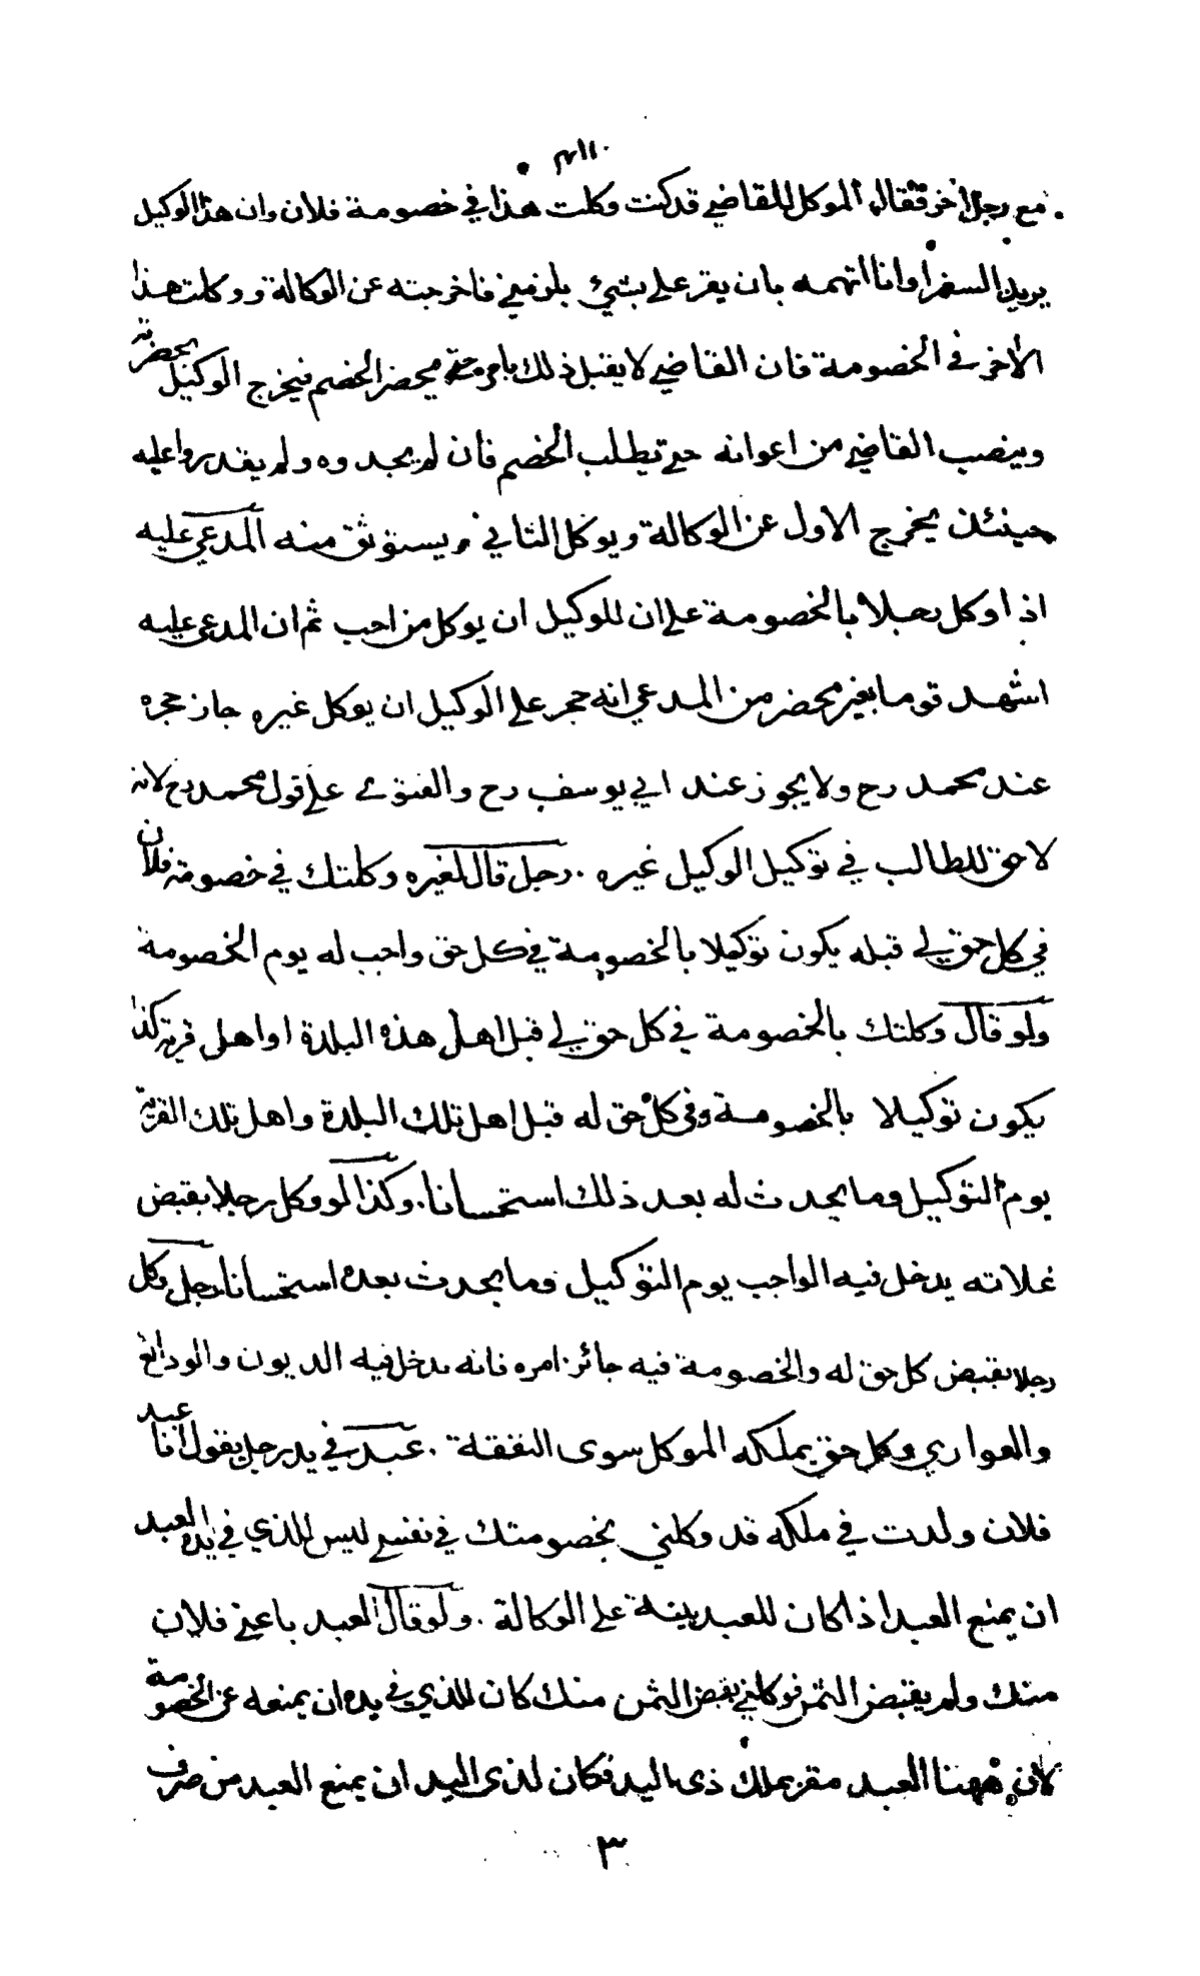 مع رجل اخر فقال الموكل للقاضي قد كنت وكلت هذا في خصومة فلان وان هذا الوكيل
يريد السفر او انا اتهمه بان يقر علي بشئ يلزمني فاخرجته عن الوكالة ووكلت هذا
الاخر في الخصومة فان القاضي لا يقبل ذلك بامره حتى يحضر الخصم فيخرج الوكيل بحضرته
وينصب القاضي من اعوانه حتى يطلب الخصم فان لم يجدوه ولم يقدروا عليه
حينئذ يخرج الاول عن الوكالة ويوكل الثاني ويستوثق منه المدعى عليه
اذا وكل رجلا بالخصومة على ان للوكيل ان يوكل من احب ثم ان المدعى عليه
اشهد قوما بغير محضر من المدعي انه حجر على الوكيل ان يوكل غيره جاز حجره
عند محمد رح ولا يجوز عند ابي يوسف رح والفتوى على قول محمد رح لانه
لا حق للطالب في توكيل الوكيل غيره . رجل قال لغيره وكلتك في خصومة فلان
في كل حق لي قبله يكون توكيلا بالخصومة في كل حق واجب له يوم الخصومة
ولو قال وكلتك بالخصومة في كل حق لي قبل اهل هذه البلدة او اهل قرية كذا
يكون توكيلا بالخصومة وفي كل حق له قبل اهل تلك البلدة واهل تلك القرية
يوم التوكيل وما يحدث له بعد ذلك استحسانا . وكذا لو وكل رجلا بقبض
غلاته يدخل فيه الواجب يوم التوكيل وما يحدث بعده استحسانا . رجل وكل
رجلا بقبض كل حق له والخصومة فيه جائز امره فانه يدخل فيه الديون والودائع
والعواري وكل حق يملكه الموكل سوى النفقة . عبد في يد رجل يقول انا عبد
فلان ولدت في ملكه قد وكلني بخصومتك في نفسي ليس للذي في يده العبد
ان يمنع العبد اذا كان للعبد بينة على الوكالة . ولو قال العبد باعني فلان
منك ولم يقبض الثمن فوكلني بقبض الثمن منك كان للذي في يده ان يمنعه عن الخصومة
لان ههنا العبد مقر بملك ذى اليد فكان لذى اليد ان يمنع العبد من صرف
٣